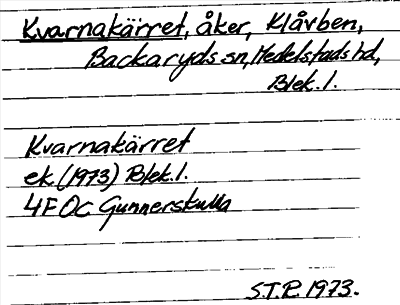 Kvarnakärret, åker, Klåvben,
Backaryds sn, Medelstads hd,
Blek. l.
Kvarnakärret
ek. (1973) Blek. l.
4F OC Gunnerskulla
S.T.R. 1973.